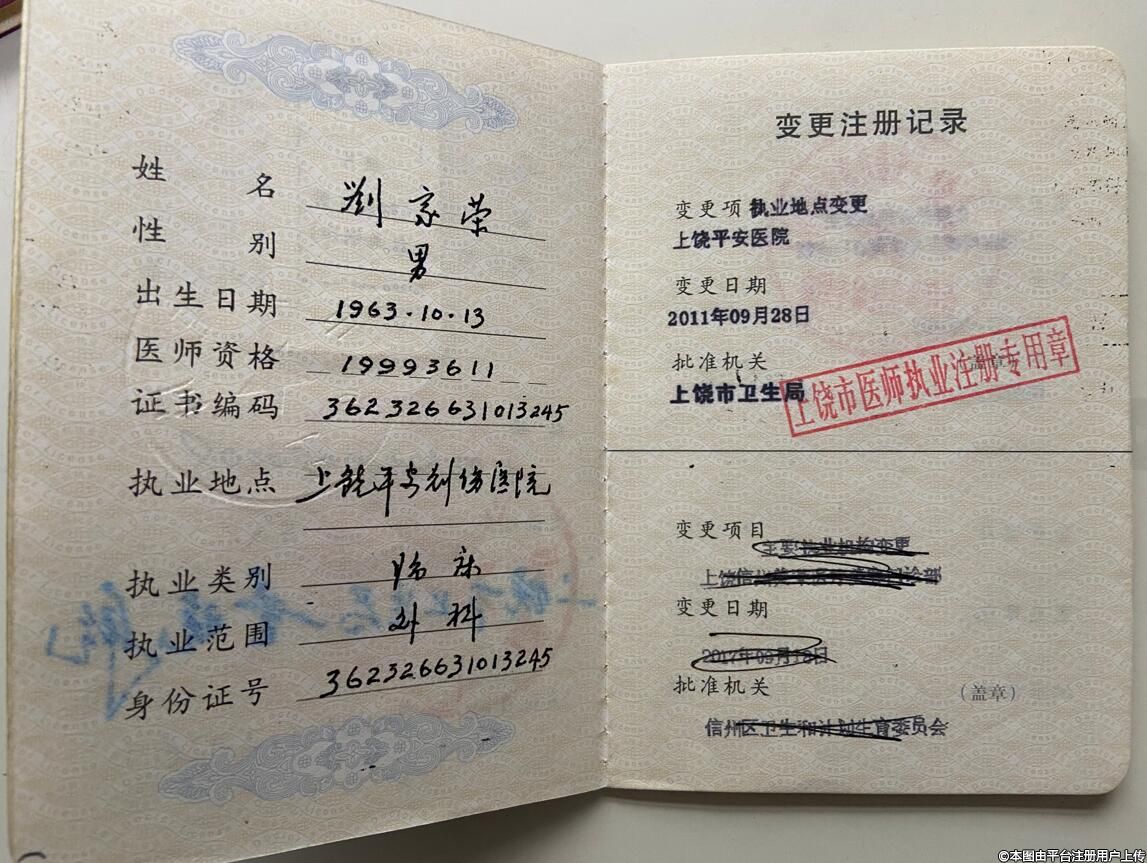 姓名 劉家荣
性别 男
出生日期 1963.10.13
医师资格 19993611
证书编码 362326631013245
执业地点 上饶平安创伤医院
执业类别 临床
执业范围 外科
身份证号 362326631013245
变更注册记录
变更项 执业地点变更
上饶平安医院
变更日期
2011年09月28日
批准机关 (盖章)
上饶市卫生局
上饶市医师执业注册专用章
变更项目
主要执业机构变更
上饶信州
变更日期
2017年09月18日
批准机关 (盖章)
信州区卫生和计划生育委员会
©本图由平台注册用户上传